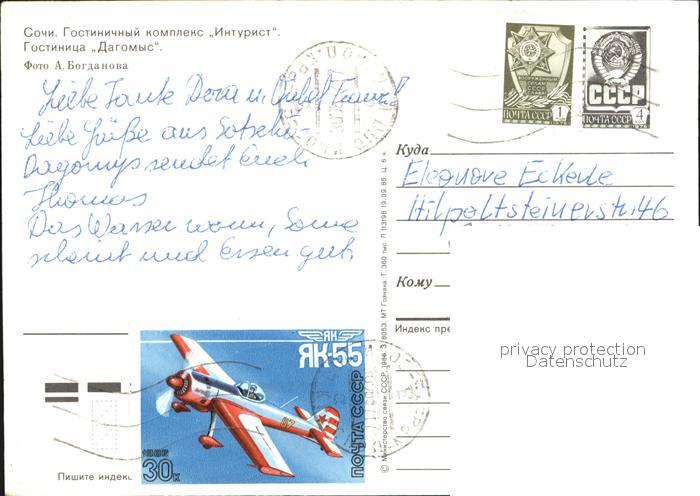 Сочи. Гостиничный комплекс „Интурист“.
Гостиница „Дагомыс“.
Фото А. Богданова
Liebe Tante Dora u. Onkel
Liebe Grüße aus Sotschi-
Dagomys sendet Euch
Thomas
Das Wasser warm, Sonne
scheint und Essen gut.
ВООРУЖЕННЫЕ СИЛЫ СССР
ПОЧТА СССР 1
СССР
ПОЧТА СССР 4
Куда
Eleonore Eckerle
Hilpoltsteinerstr. 46
Кому
Индекс пре
privacy protection
Datenschutz
© Министерство связи СССР. 1986. З. 8053. МТ Гознака. Т. 360 тыс. П 113198 19.09.85. Ц. 6 к.
ЯК
ЯК-55
87
ПОЧТА СССР
1986
30к
Пишите индекс